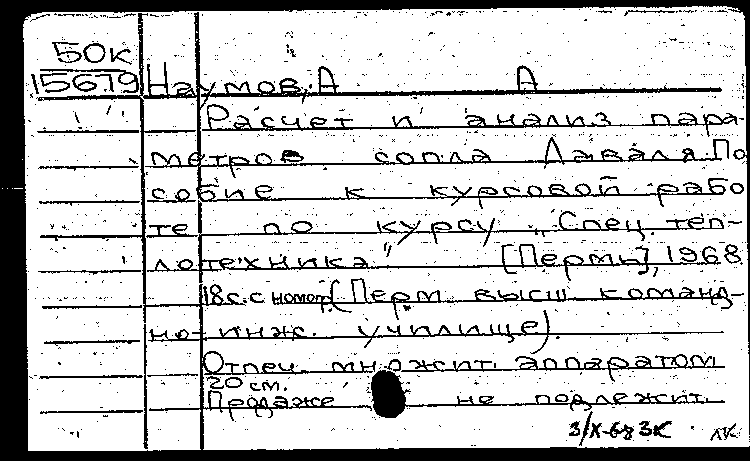 50к
15679 Наумов, А А
Расчет и анализ пара-
метров сопла Лаваля. По
собие к курсовой рабо
те по курсу „Спец. теп-
лотехника" [Пермь], 1968
18с. с номог. (Перм. высш команд-
но-инж. училище).
Отпеч. множит. аппаратом
20 см.
Продаже не подлежит.
3/X-68 ЗК